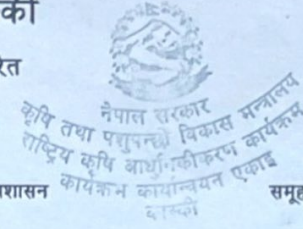 की
रेत
नेपाल सरकार
कृषि तथा पशुपन्छी विकास मन्त्रालय
राष्ट्रिय कृषि आधुनिकीकरण कार्यक्रम
कार्यक्रम कार्यान्वयन एकाइ
कास्की
शासन
समूह